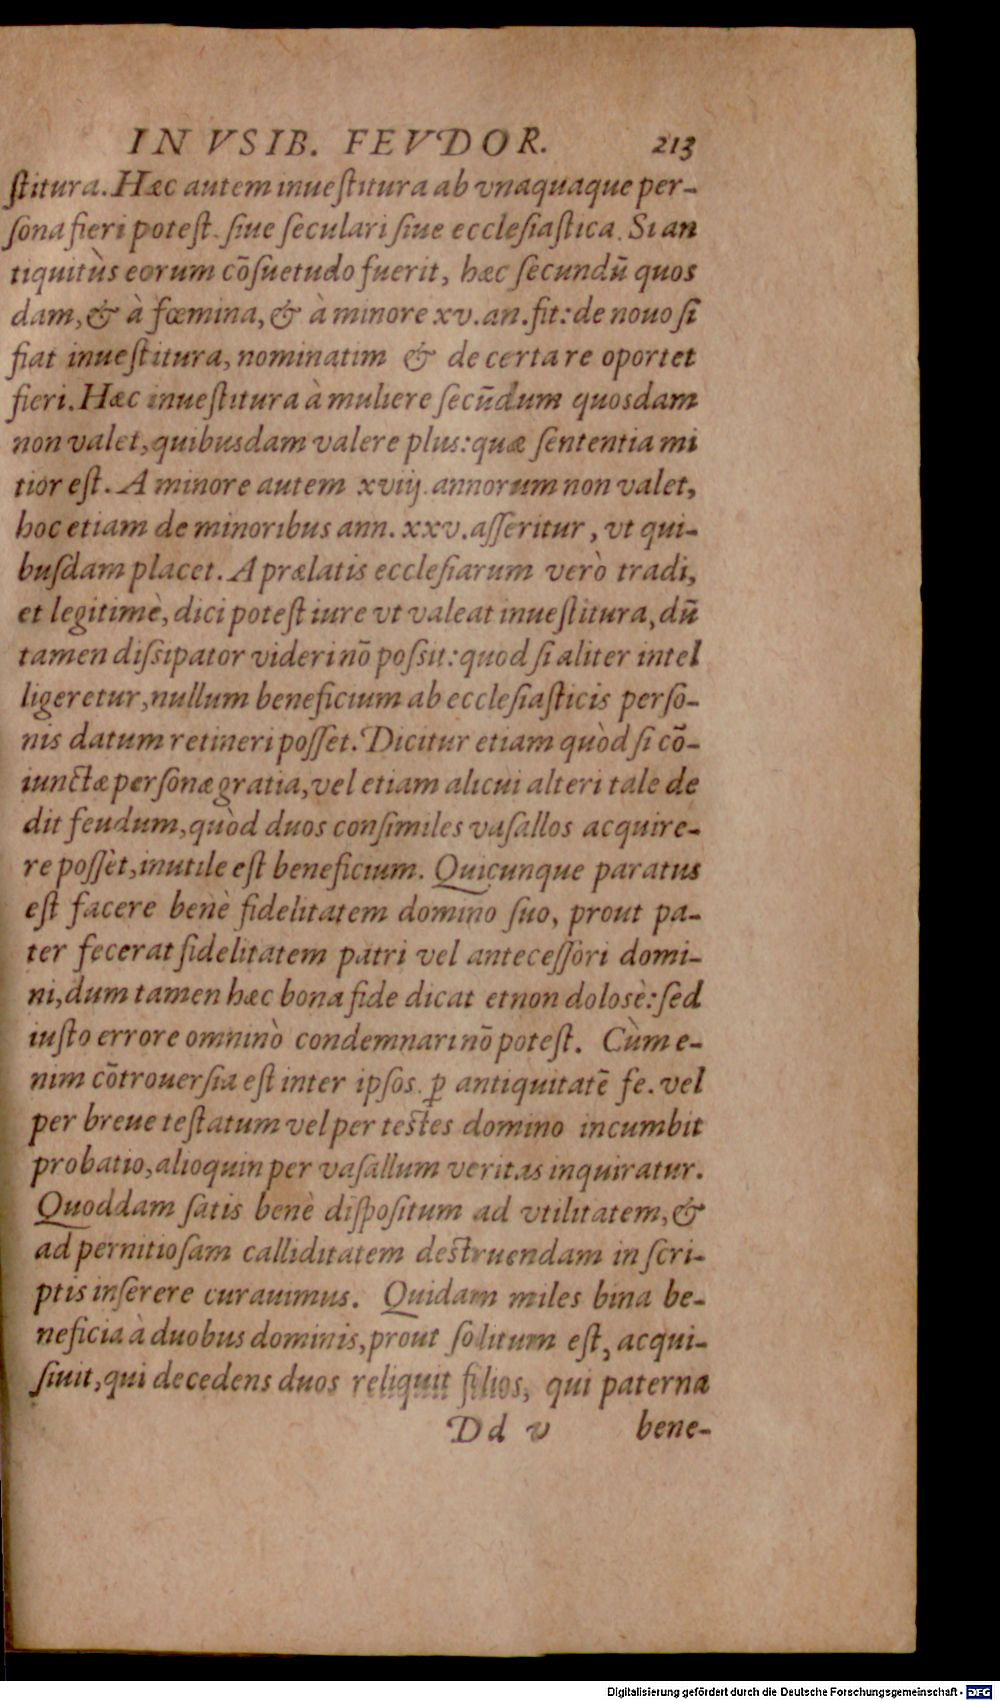 IN VSIB. FEVDOR. 213
ſtitura. Hæc autem inueſtitura ab vnaquaque per-
ſona fieri poteſt. ſiue ſeculari ſiue eccleſiaſtica. Si an
tiquitùs eorum cõſuetudo fuerit, hæc ſecundũ quos
dam, & à fœmina, & à minore xv. an. fit: de nouo ſi
fiat inueſtitura, nominatim & de certa re oportet
fieri. Hæc inueſtitura à muliere ſecũdum quosdam
non valet, quibusdam valere plus: quæ ſententia mi
tior eſt. A minore autem xviij. annorum non valet,
hoc etiam de minoribus ann. xxv. aſſeritur, vt qui-
buſdam placet. A prælatis eccleſiarum verò tradi,
et legitimè, dici poteſt iure vt valeat inueſtitura, dũ
tamen diſsipator videri nõ poſsit: quod ſi aliter intel
ligeretur, nullum beneficium ab eccleſiaſticis perſo-
nis datum retineri poſſet. Dicitur etiam quòd ſi cõ-
iunctæ perſonæ gratia, vel etiam alicui alteri tale de
dit feudum, quòd duos conſimiles vaſallos acquire-
re poſſèt, inutile eſt beneficium. Quicunque paratus
eſt facere benè fidelitatem domino ſuo, prout pa-
ter fecerat fidelitatem patri vel anteceſſori domi-
ni, dum tamen hæc bona fide dicat et non dolosè: ſed
iuſto errore omninò condemnari nõ poteſt. Cùm e-
nim cõtrouerſia eſt inter ipſos. ꝑ antiquitatẽ fe. vel
per breue teſtatum vel per teſtes domino incumbit
probatio, alioquin per vaſallum veritas inquiratur.
Quoddam ſatis benè diſpoſitum ad vtilitatem, &
ad pernitioſam calliditatem deſtruendam in ſcri-
ptis inſerere curauimus. Quidam miles bina be-
neficia à duobus dominis, prout ſolitum eſt, acqui-
ſiuit, qui decedens duos reliquit filios, qui paterna
Dd v bene-
Digitalisierung gefördert durch die Deutsche Forschungsgemeinschaft - DFG